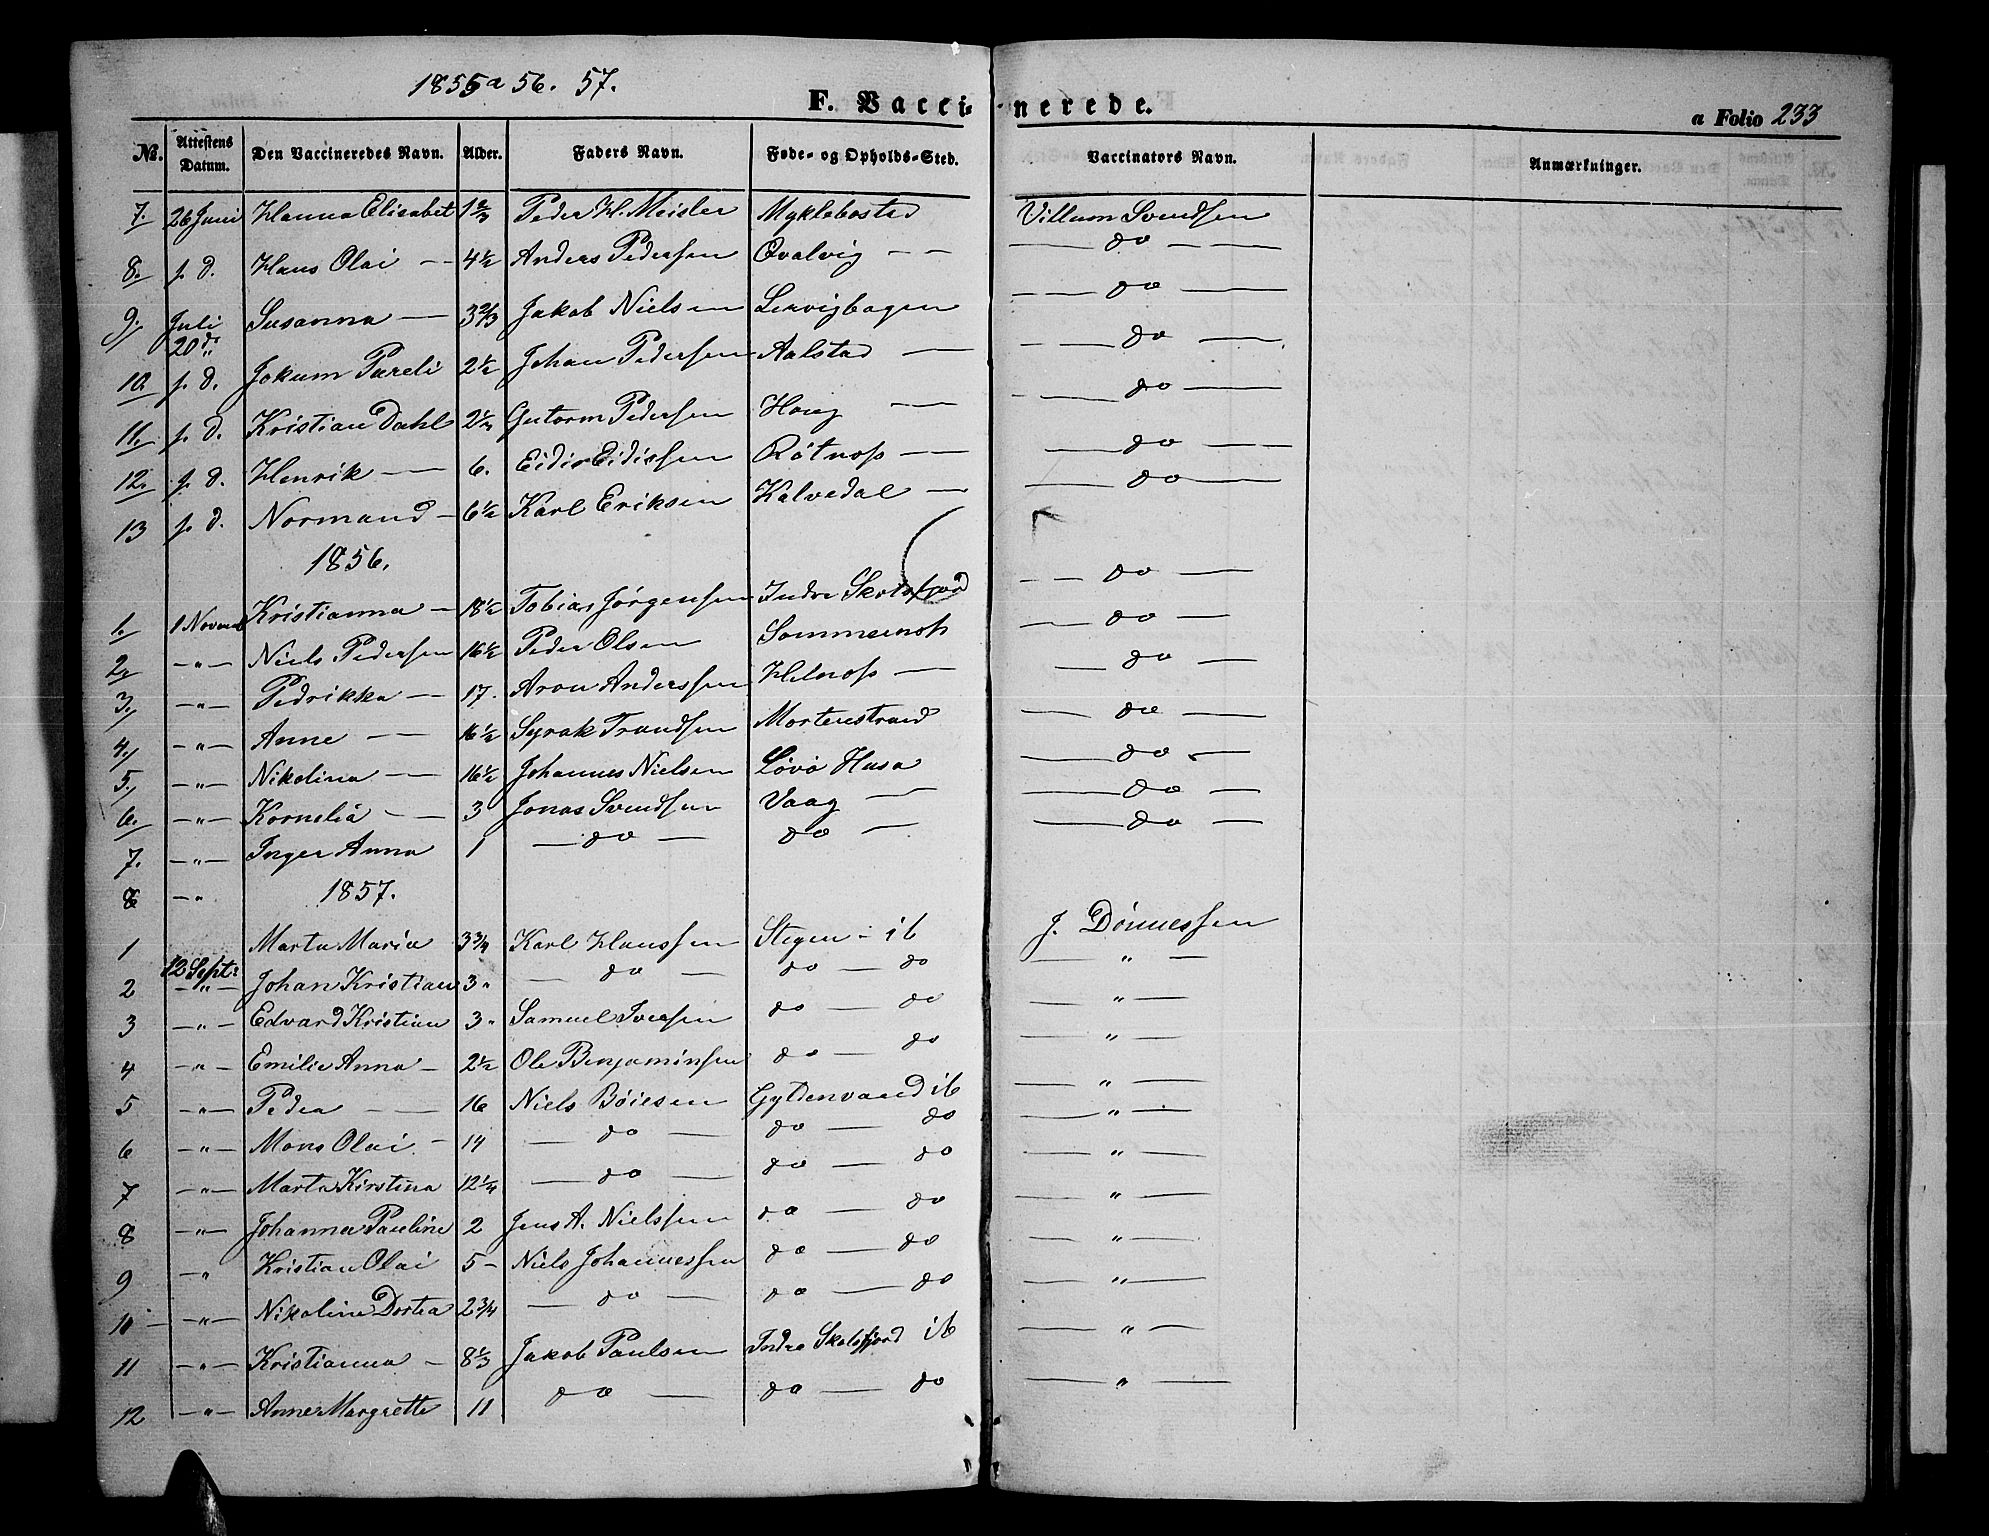 1855 a 56. 57.
F. Vaccinerede.
a Folio 233
No. Attestens Datum. Den Vaccineredes Navn. Alder. Faders Navn. Føde- og Opholds-Sted. Vaccinators Navn. Anmærkninger.
7. 26 Juni Hanna Elisabet 1 2/3 Peder H. Meisler Myklebostad Villum Svendsen
8. s. d. Hans Olai — 4 1/2 Anders Pedersen Qvalvig — — — do —
9. Juli 20de Susanna — 3 2/3 Jakob Nielsen Lervigbogen — do —
10. s. d. Jokum Pareli 2 1/2 Johan Pedersen Aalstad — — do —
11. s. d. Kristian Dahl 2 1/2 Gutorm Pedersen Houg — — do —
12. s. d. Henrik — 6. Eidis Eidissen Røtnes — — do —
13 s. d. Normand — 6 1/2 Karl Eriksen Kalvedal — — do —
1856.
1. 1 Novemb Kristianna — 18 1/2 Tobias Jørgensen Indre Skotsfjord — do —
2. — " — Niels Pedersen 16 1/2 Peder Olsen — do —
3. — " — Pedrikka — 17. Aron Anderssen Helnes — — do —
4. — " — Anne — 16 1/2 Syrak Trondsen Mortenstrand — do —
5. — " — Nikolina — 16 1/2 Johannes Nielsen Løvø Husø — do —
6. — " — Kornelia — 3 Jonas Svendsen Vaag — — do —
7. — " — Inger Anna 1 — do — do — — do —
8 — " 1857.
1 Marta Maria 3 3/4 Karl Hanssen Stegen - ib J. Dønnessen
2 12 Sept: — " — Johan Kristian 3 " — do — do — do — " —
3 — " — Edvard Kristian 3 " Samuel Iversen do — do — " —
4 — " — Emilie Anna — 2 1/2 Ole Benjaminsen do — do — " —
5 — " — Pedra — 16 Niels Bøiesen Gyldenvand ib — " —
6 — " — Mons Olai — 14 — do — do — do — " —
7 — " — Marta Kirstina 12 1/4 — do — do — do — " —
8 — " — Johanna Pauline 2 Jens A. Nielssen do — do — " —
9 — " Kristian Olai 5 — Niels Johannessen do — do — " —
10 — " — Nikoline Dortea 2 3/4 — do — do — do — " —
11 — " — Kristianna — 8 1/3 Jakob Paulsen Indre Skotsfjord ib — " —
12 — " — Anne Margrette 11 do — do — do — " —